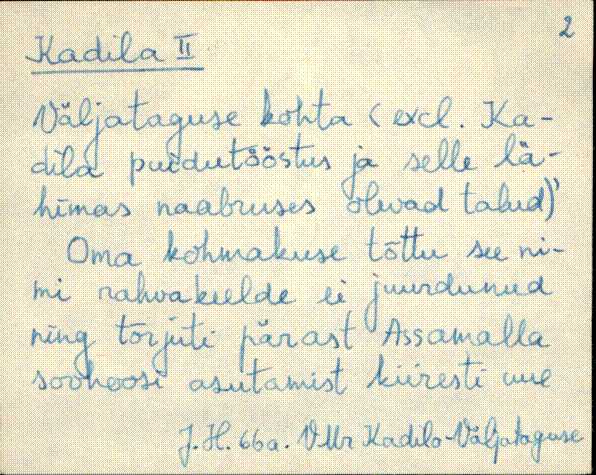 2
Kadila II
Väljataguse kohta (excl. Ka-
dila puidutööstus ja selle lä-
himas naabruses olevad talud)
Oma kohmakuse tõttu see ni-
mi rahvakeelde ei juurdunud
ning tõrjuti pärast Assamalla
sovhoosi asutamist kiiresti uue
J.H. 66a. VMr Kadila-Väljataguse